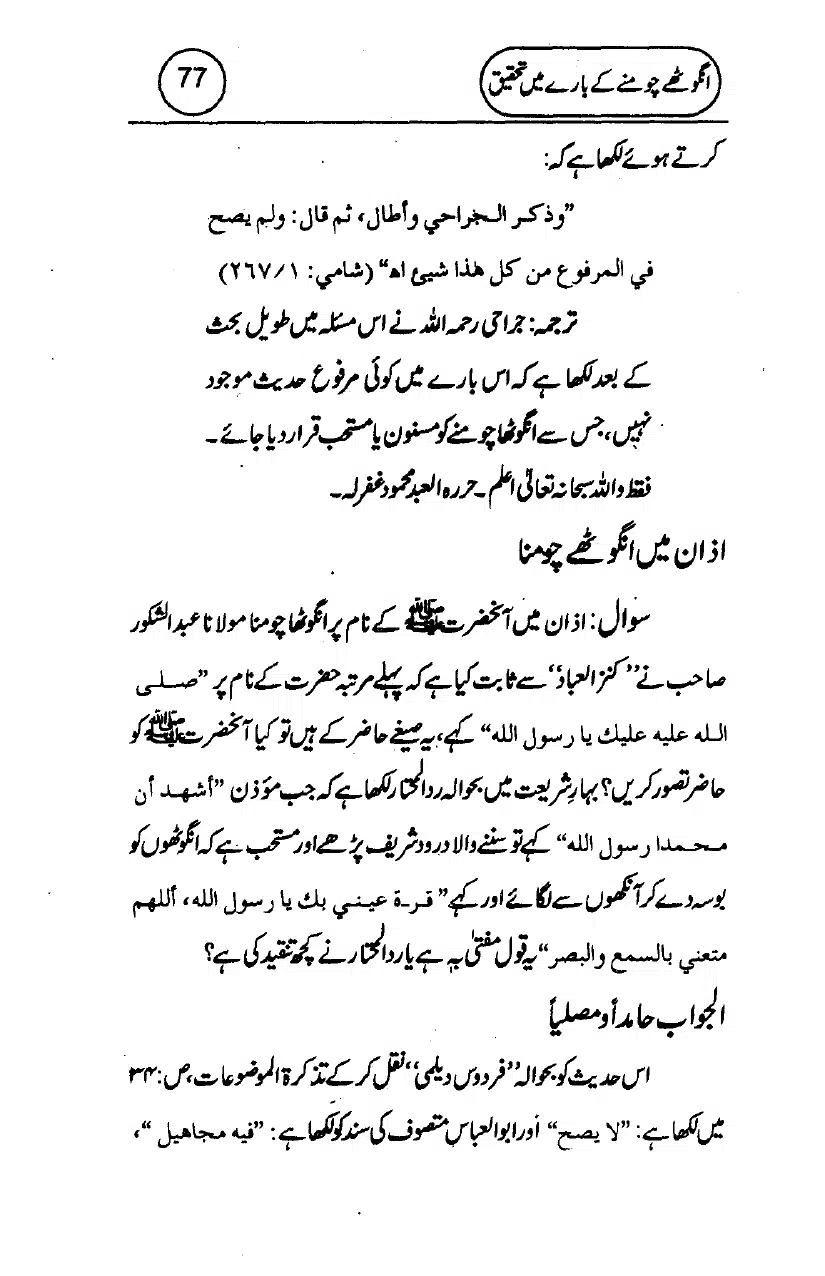 انگوٹھے چومنے کے بارے میں تحقیق
77
کرتے ہوئے لکھا ہے کہ:
”وذكر الجراحي وأطال، ثم قال: ولم يصح
في المرفوع من كل هذا شيئ اه“ (شامي: ٢٦٧/١)
ترجمہ: جراحی رحمہ اللہ نے اس مسئلہ میں طویل بحث
کے بعد لکھا ہے کہ اس بارے میں کوئی مرفوع حدیث موجود
نہیں، جس سے انگوٹھا چومنے کو مسنون یا مستحب قرار دیا جائے۔
فقط واللہ سبحانہ تعالیٰ اعلم۔ حررہ العبد محمود غفرلہ۔
اذان میں انگوٹھے چومنا
سوال: اذان میں آنحضرت ﷺ کے نام پر انگوٹھا چومنا مولانا عبدالشکور
صاحب نے ”کنز العباد“ سے ثابت کیا ہے کہ پہلے مرتبہ حضرت کے نام پر ”صلى
الله عليه عليك يا رسول الله“ کہے، یہ صیغے حاضر کے ہیں تو کیا آنحضرت ﷺ کو
حاضر تصور کریں؟ بہارِ شریعت میں بحوالہ رد المحتار لکھا ہے کہ جب مؤذن ”أشهد أن
محمدا رسول الله“ کہے تو سننے والا درود شریف پڑھے اور مستحب ہے کہ انگوٹھوں کو
بوسہ دے کر آنکھوں سے لگائے اور کہے ”قرة عيني بك يا رسول الله، أللهم
متعني بالسمع والبصر“ یہ قول مفتیٰ بہ ہے یا رد المحتار نے کچھ تنقید کی ہے؟
الجواب حامداً ومصلیاً
اس حدیث کو بحوالہ ”فردوس دیلمی“ نقل کر کے تذکرۃ الموضوعات، ص: ۳۴
میں لکھا ہے: ”لا يصح“ اور ابو العباس متصوف کی سند کو لکھا ہے: ”فيه مجاهيل“،